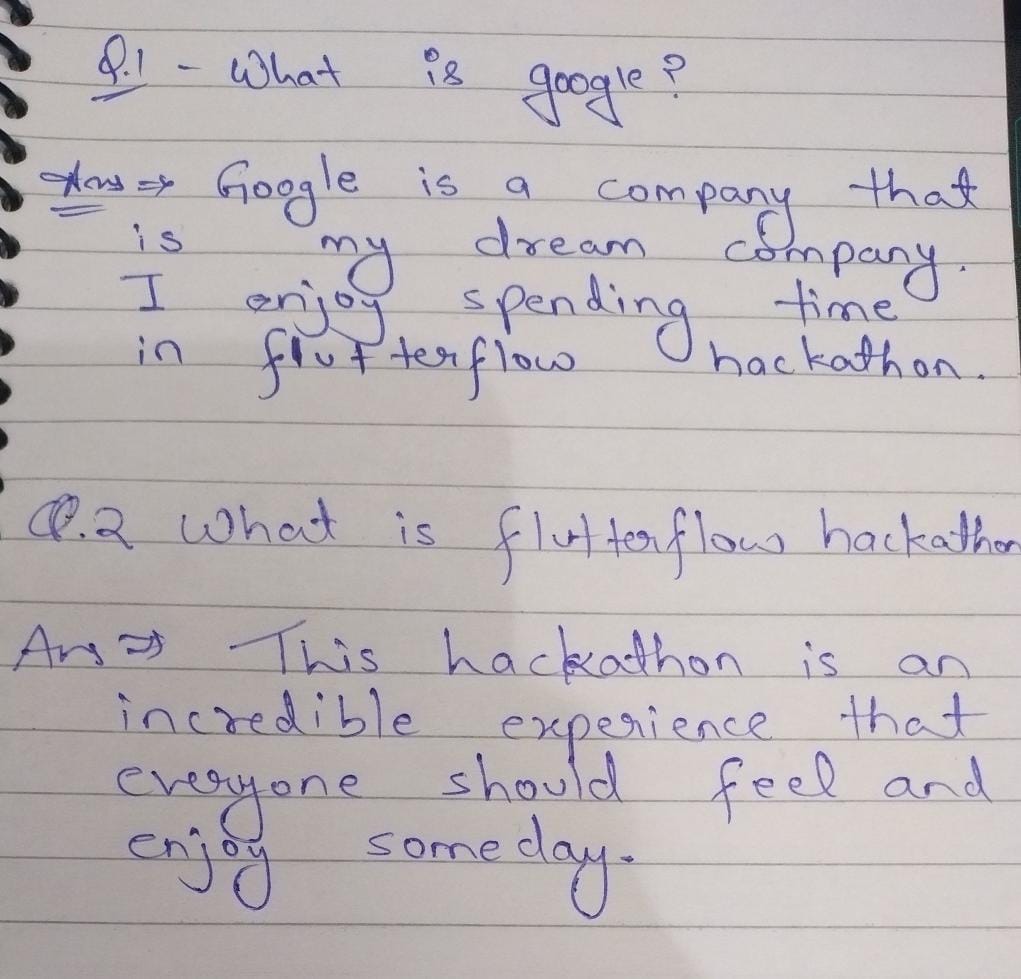 Q.1 - What is google?
Ans ⇒ Google is a company that
is my dream company.
I enjoy spending time
in flutterflow hackathon.
Q.2 What is flutterflow hackathon
Ans ⇒ This hackathon is an
incredible experience that
everyone should feel and
enjoy someday.